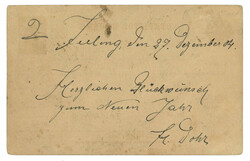 2
Tieling, den 27. Dezember 04.
Herzlichen Glückwunsch
zum Neuen Jahr